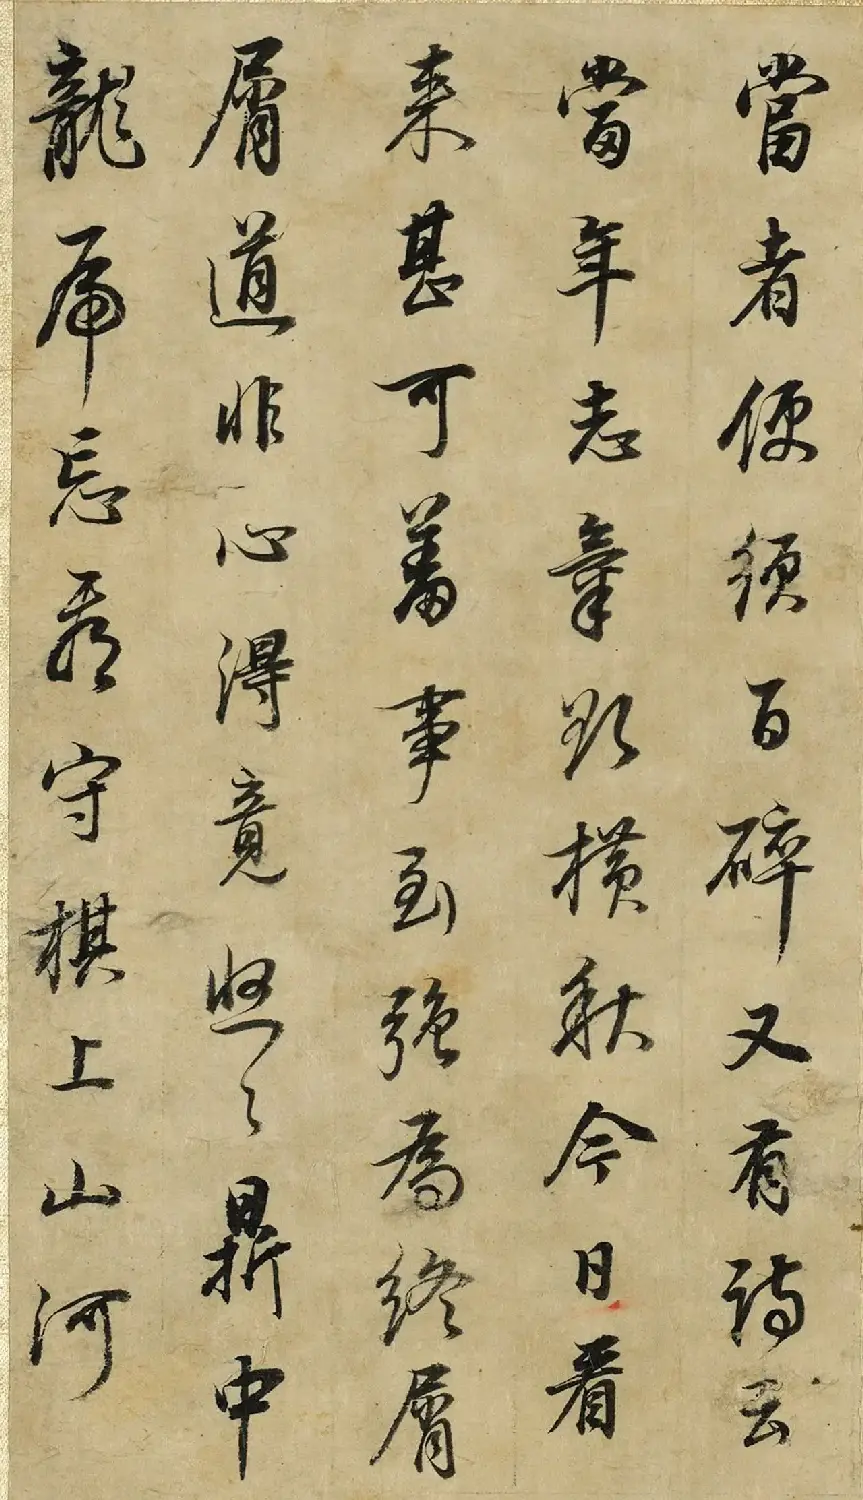 當者便須百碎又有詩云
當年志氣欲橫秋今日看
來甚可羞事到強為終屑
屑道非心得竟悠〻鼎中
龍虎忘看守棋上山河